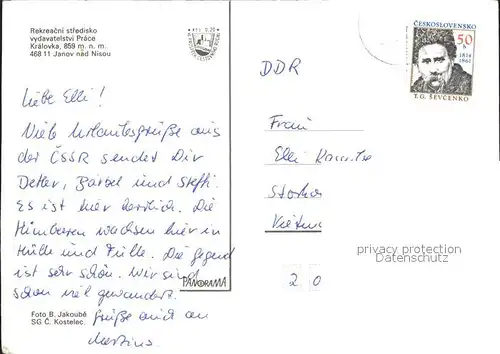 Rekreační středisko
vydavatelství Práce
Královka, 859 m. n. m.
468 11 Janov nad Nisou
Liebe Elli!
Viele Urlaubsgrüße aus
der ČSSR sendet Dir
Detlev, Bärbel und Steffi.
Es ist hier herrlich. Die
Himbeeren wachsen hier in
Hülle und Fülle. Die Gegend
ist sehr schön. Wir sind
schon viel gewandert.
Grüße auch an
Martina.
PANORAMA
Foto B. Jakoubě
SG Č. Kostelec
ČESKOSLOVENSKO
50
h
1814
1861
T. G. ŠEVČENKO
DDR
Frau
Elli
privacy protection
Datenschutz
2 0